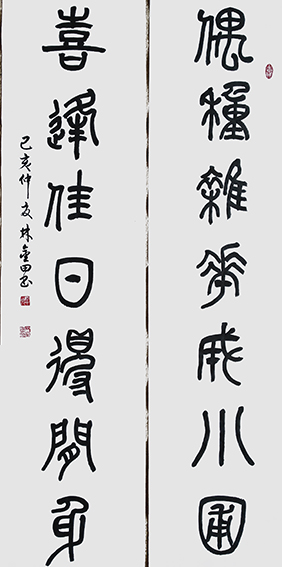 偶種雜花成小圃
喜逢佳日得閒身
己亥仲夏林金田書